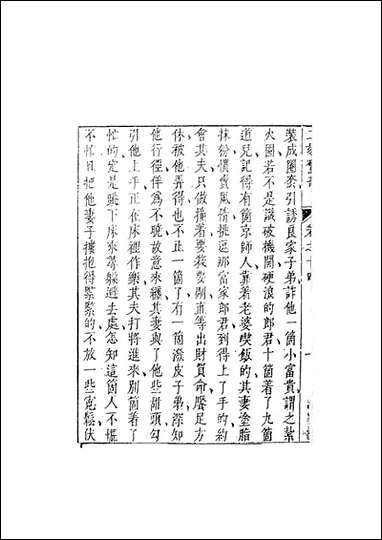 二刻驚奇
卷之十四
一
裝成圈套引誘良家子弟詐他一箇小富貴謂之紮
火囤若不是識破機關硬浪的郎君十箇着了九箇
道兒記得有箇京師人靠着老婆喫飯的其妻塗脂
抹粉慣賣風情挑逗那富家郎君到得上了手的約
會其夫只做撞着要殺要剮直等出財買命饜足方
休被他弄得也不止一箇了有一箇潑皮子弟深知
他行徑佯爲不曉故意來纏其妻與了他些甜頭勾
引他上手正在床裡作樂其夫打將進來別箇着了
忙的定是跳下床來尋躲避去處怎知這箇人不慌
不忙且把他妻子摟抱得緊緊的不放一些寬鬆伏